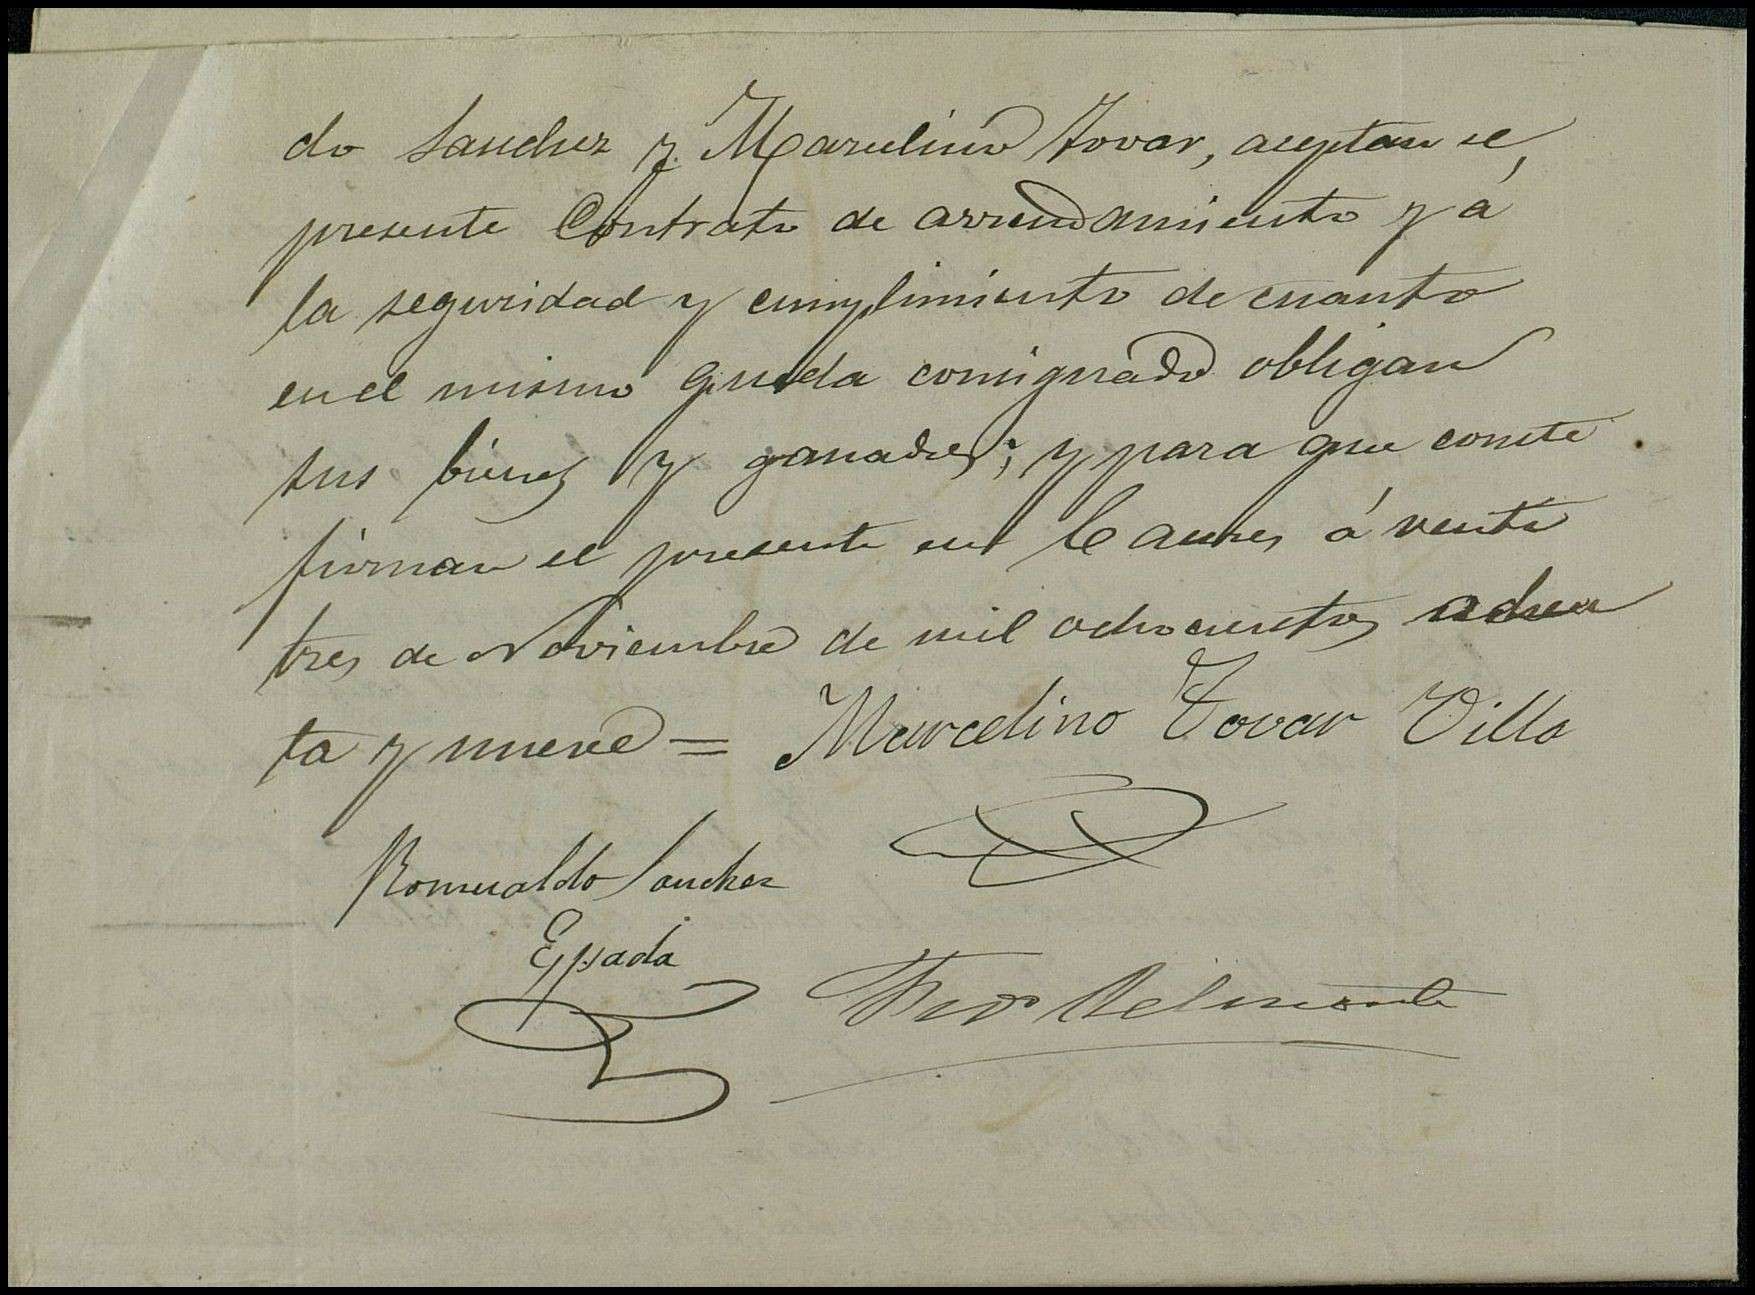 do Sanchez y Marcelino Tovar, aceptan el
presente Contrato de arrendamiento y á
la seguridad y cumplimiento de cuanto
en el mismo queda consignado obligan
sus bienes y ganados; y para que conste
firman el presente en Caceres á veinte
tres de Noviembre de mil ochocientos ochen
ta y nueve = Marcelino Tovar Villa
Romualdo Sanchez
Espada
Belmonte